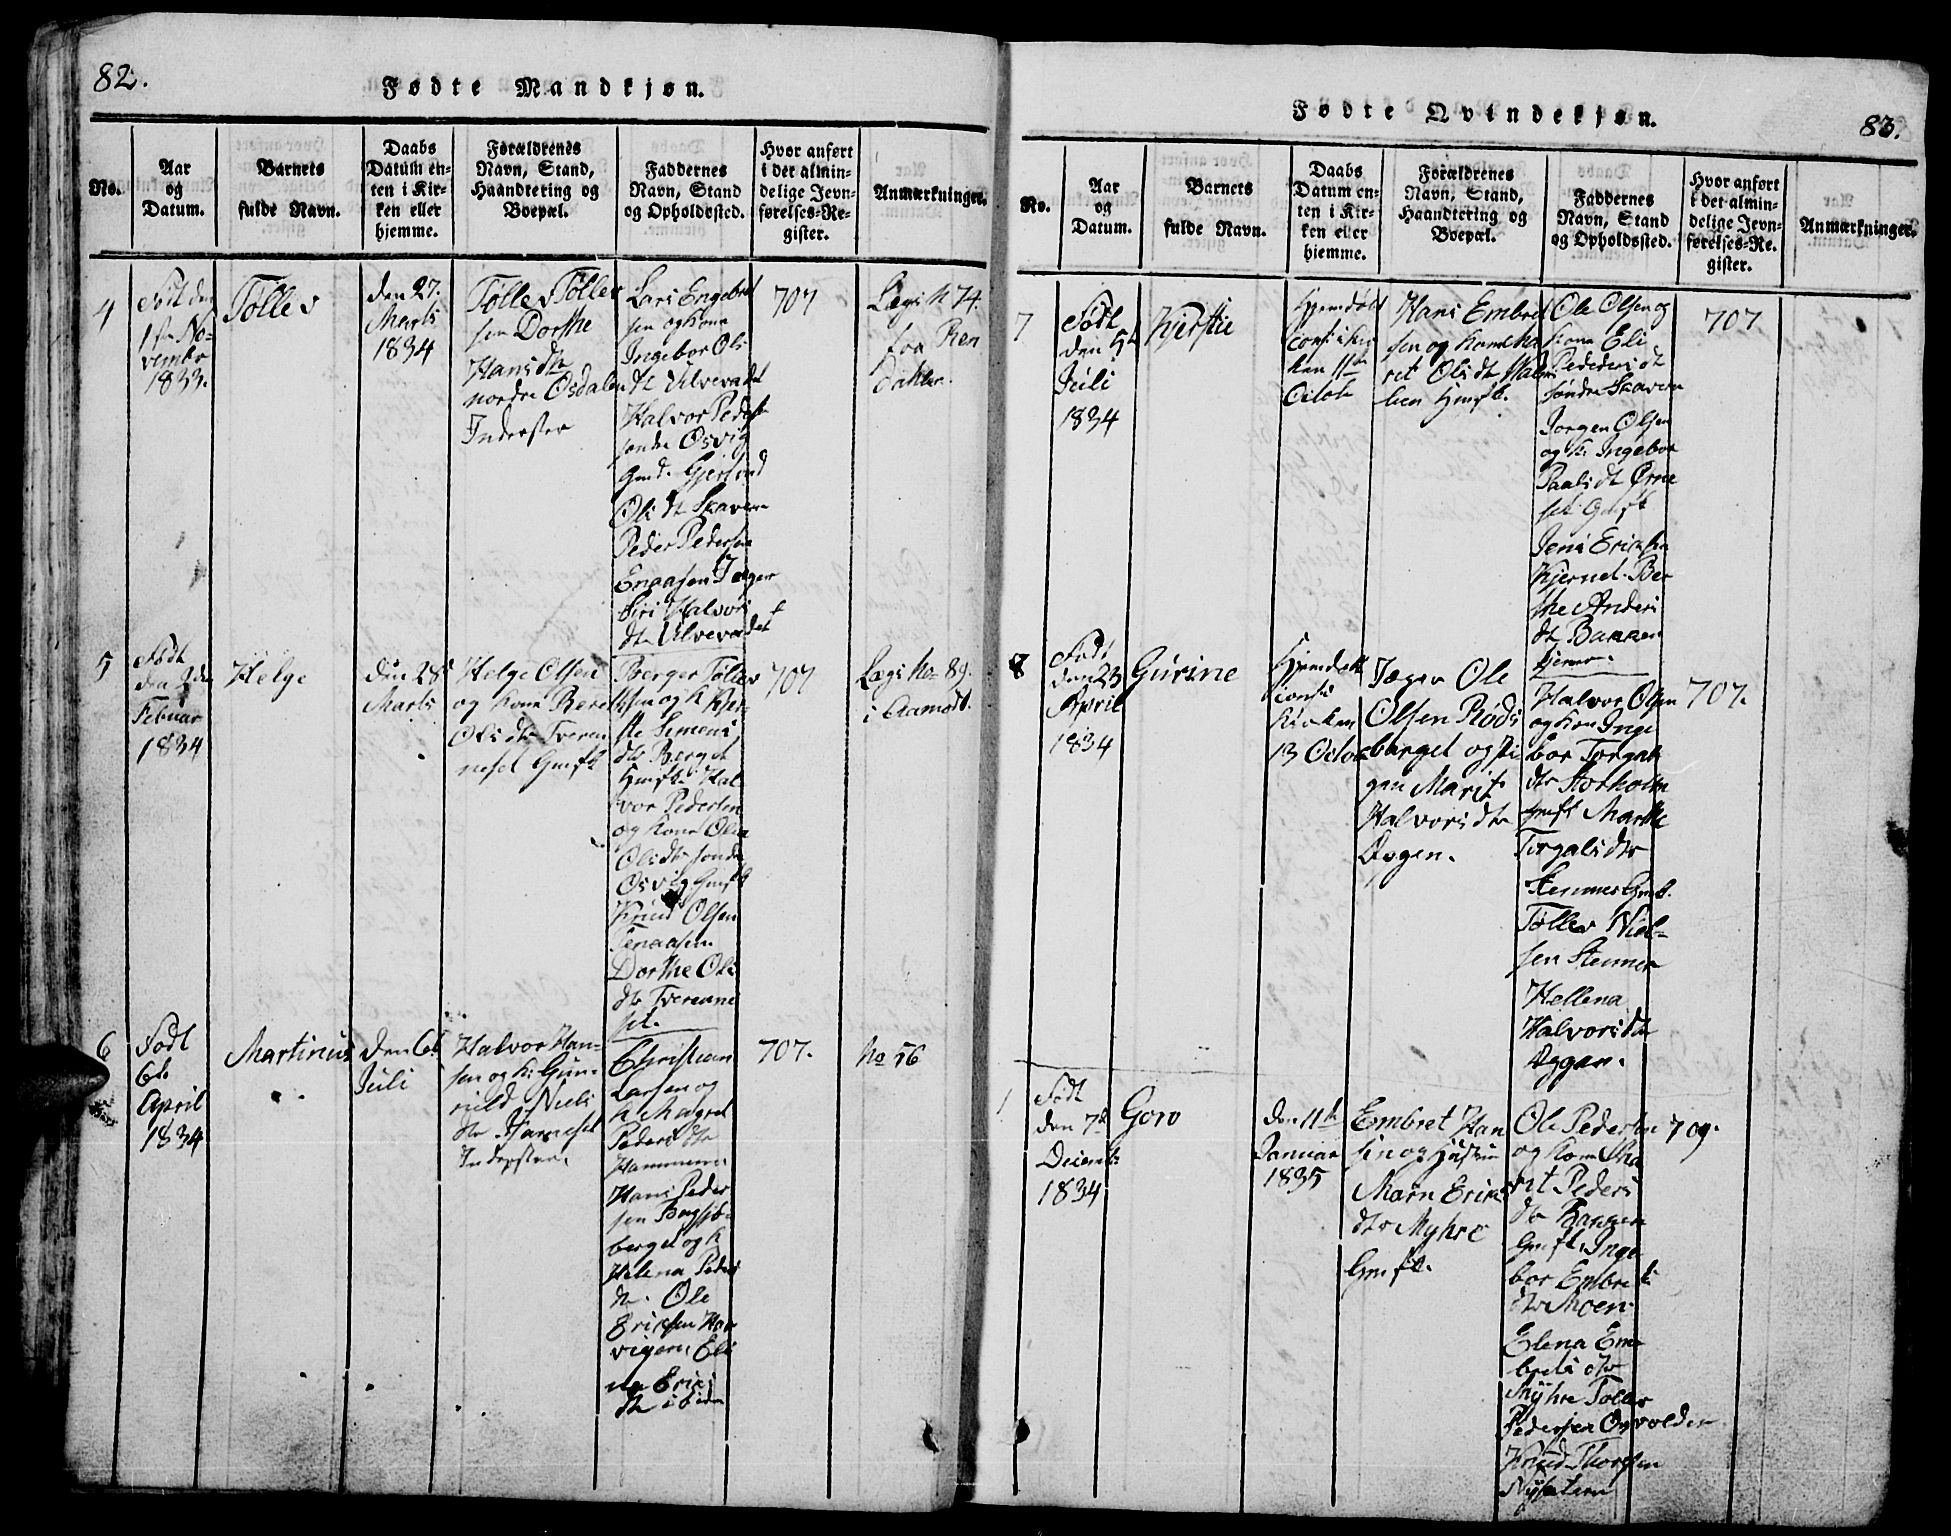 82.
Fødte Mandkjøn.
No.
Aar
og
Datum.
Barnets
fulde Navn.
Daabs
Datum en-
ten i Kir-
ken eller
hjemme.
Forældrenes
Navn, Stand,
Haandtering og
Boepæl.
Faddernes
Navn, Stand
og Opholdssted.
Hvor anført
i det almin-
delige Jevn-
førelses-Re-
gister.
Anmærkninger.
4
Født den
No-
vembr
1833.
Tollev
den 27.
Marts
1834
Tollev Tollev
sen Dorthe
Hansdtr
nordre Osdalen
Inderster
Lars Engebret
sen og Kone
Ingebor Ols
dtr Ulvevadet
Halvor Peders
søndre Osvig
Gmd. Gjertrud
Ols dtr Skaveren
Peder Pedersen
Enaasen Jæger
Siri Halvors
dtr Ulvevadet
707
Lægs N 74.
fra Ren
dahlen.
5
Født
den 2den
Febuar
1834
Helge
den 28
Marts
Helge Olsen
og Kone Bereth
Olsdtr Tveren
neset Gmfk
Berger Tollev
sen og K Kjer
stie Simens
dtr Berget
Hmfk. Hal
vor Pedersen
og Kone Olea
Olsdtr søndre
Osvig Gmfk
Knud Olsen
Tenaasen
Dorthe Ols
dtr Tverenne
set.
707
Lægs No 89.
i Aamodt.
6
Født
6te
April
1834
Martinus
den 6te
Juli
Halvor Han-
sen og K. Gun-
nild Niels
dtr Harneset
Inderster.
Christian
Larsen og
K Magret
Pedersdtr
Hammeren
Hans Peder
sen Bagsjø-
berget og K
Helena Peders
dtr. Ole
Eriksen Hor
vigen, Eli
na Eriks
dtr
707.
No 56
Fødte Qvindekjøn.
83.
No.
Aar
og
Datum.
Barnets
fulde Navn.
Daabs
Datum en-
ten i Kir-
ken eller
hjemme.
Forældrenes
Navn, Stand,
Haandtering og
Boepæl.
Faddernes
Navn, Stand
og Opholdssted.
Hvor anført
i det almin-
delige Jevn-
førelses-Re-
gister.
Anmærkninger.
7
Født
den 5te
Juli
1834
Kjerstie
Hjemdøbt
conf i Kir
ken 11te
Octob
Hans Embret
sen og Kone Ma
ret Olsdt Malm
lien Hmfk.
Ole Olsen og
Kone Eli
Pedersdt
søndre Skaveren
Jorgen Olsen
og K. Ingebor
Paalsdt Ørne
set Gmfk
Jens Eriksen
Kjernet. Ber
the Anders
dt Bakken
Kjernet.
707
8
Født
den 23
April
1834
Gurine
Hjemdøbt
conf i
Kirken
13 Octob
Jæger Ole
Olsen Røds
berget og Pi
gen Marit
Halvorsdtr
Øggen.
Halvor Olsen
og Kone Inge
bor Torgals
dtr Storholm
Gmfk Marthe
Torgalsdtr
Stenmer Gmk.
Tollev Niel-
sen Stenmer
Hellena
Halvorsdtr
Øggen.
707.
1
Født
den 7de
Decemb
1834
Goro
den 11te
Januar
1835
Embret Han
sen og Hustru
Marn Eriks
dtr Myhre
Gmfk.
Ole Pedersen
og Kone Ma
rit Peders
dtr Bakken
Gmfk, Inge
bor Embrets
dtr Moen
Elena Em-
brets dtr
Myhre Tollev
Pedersen Osvolden
Knud Thorsen
Nysetren
709.